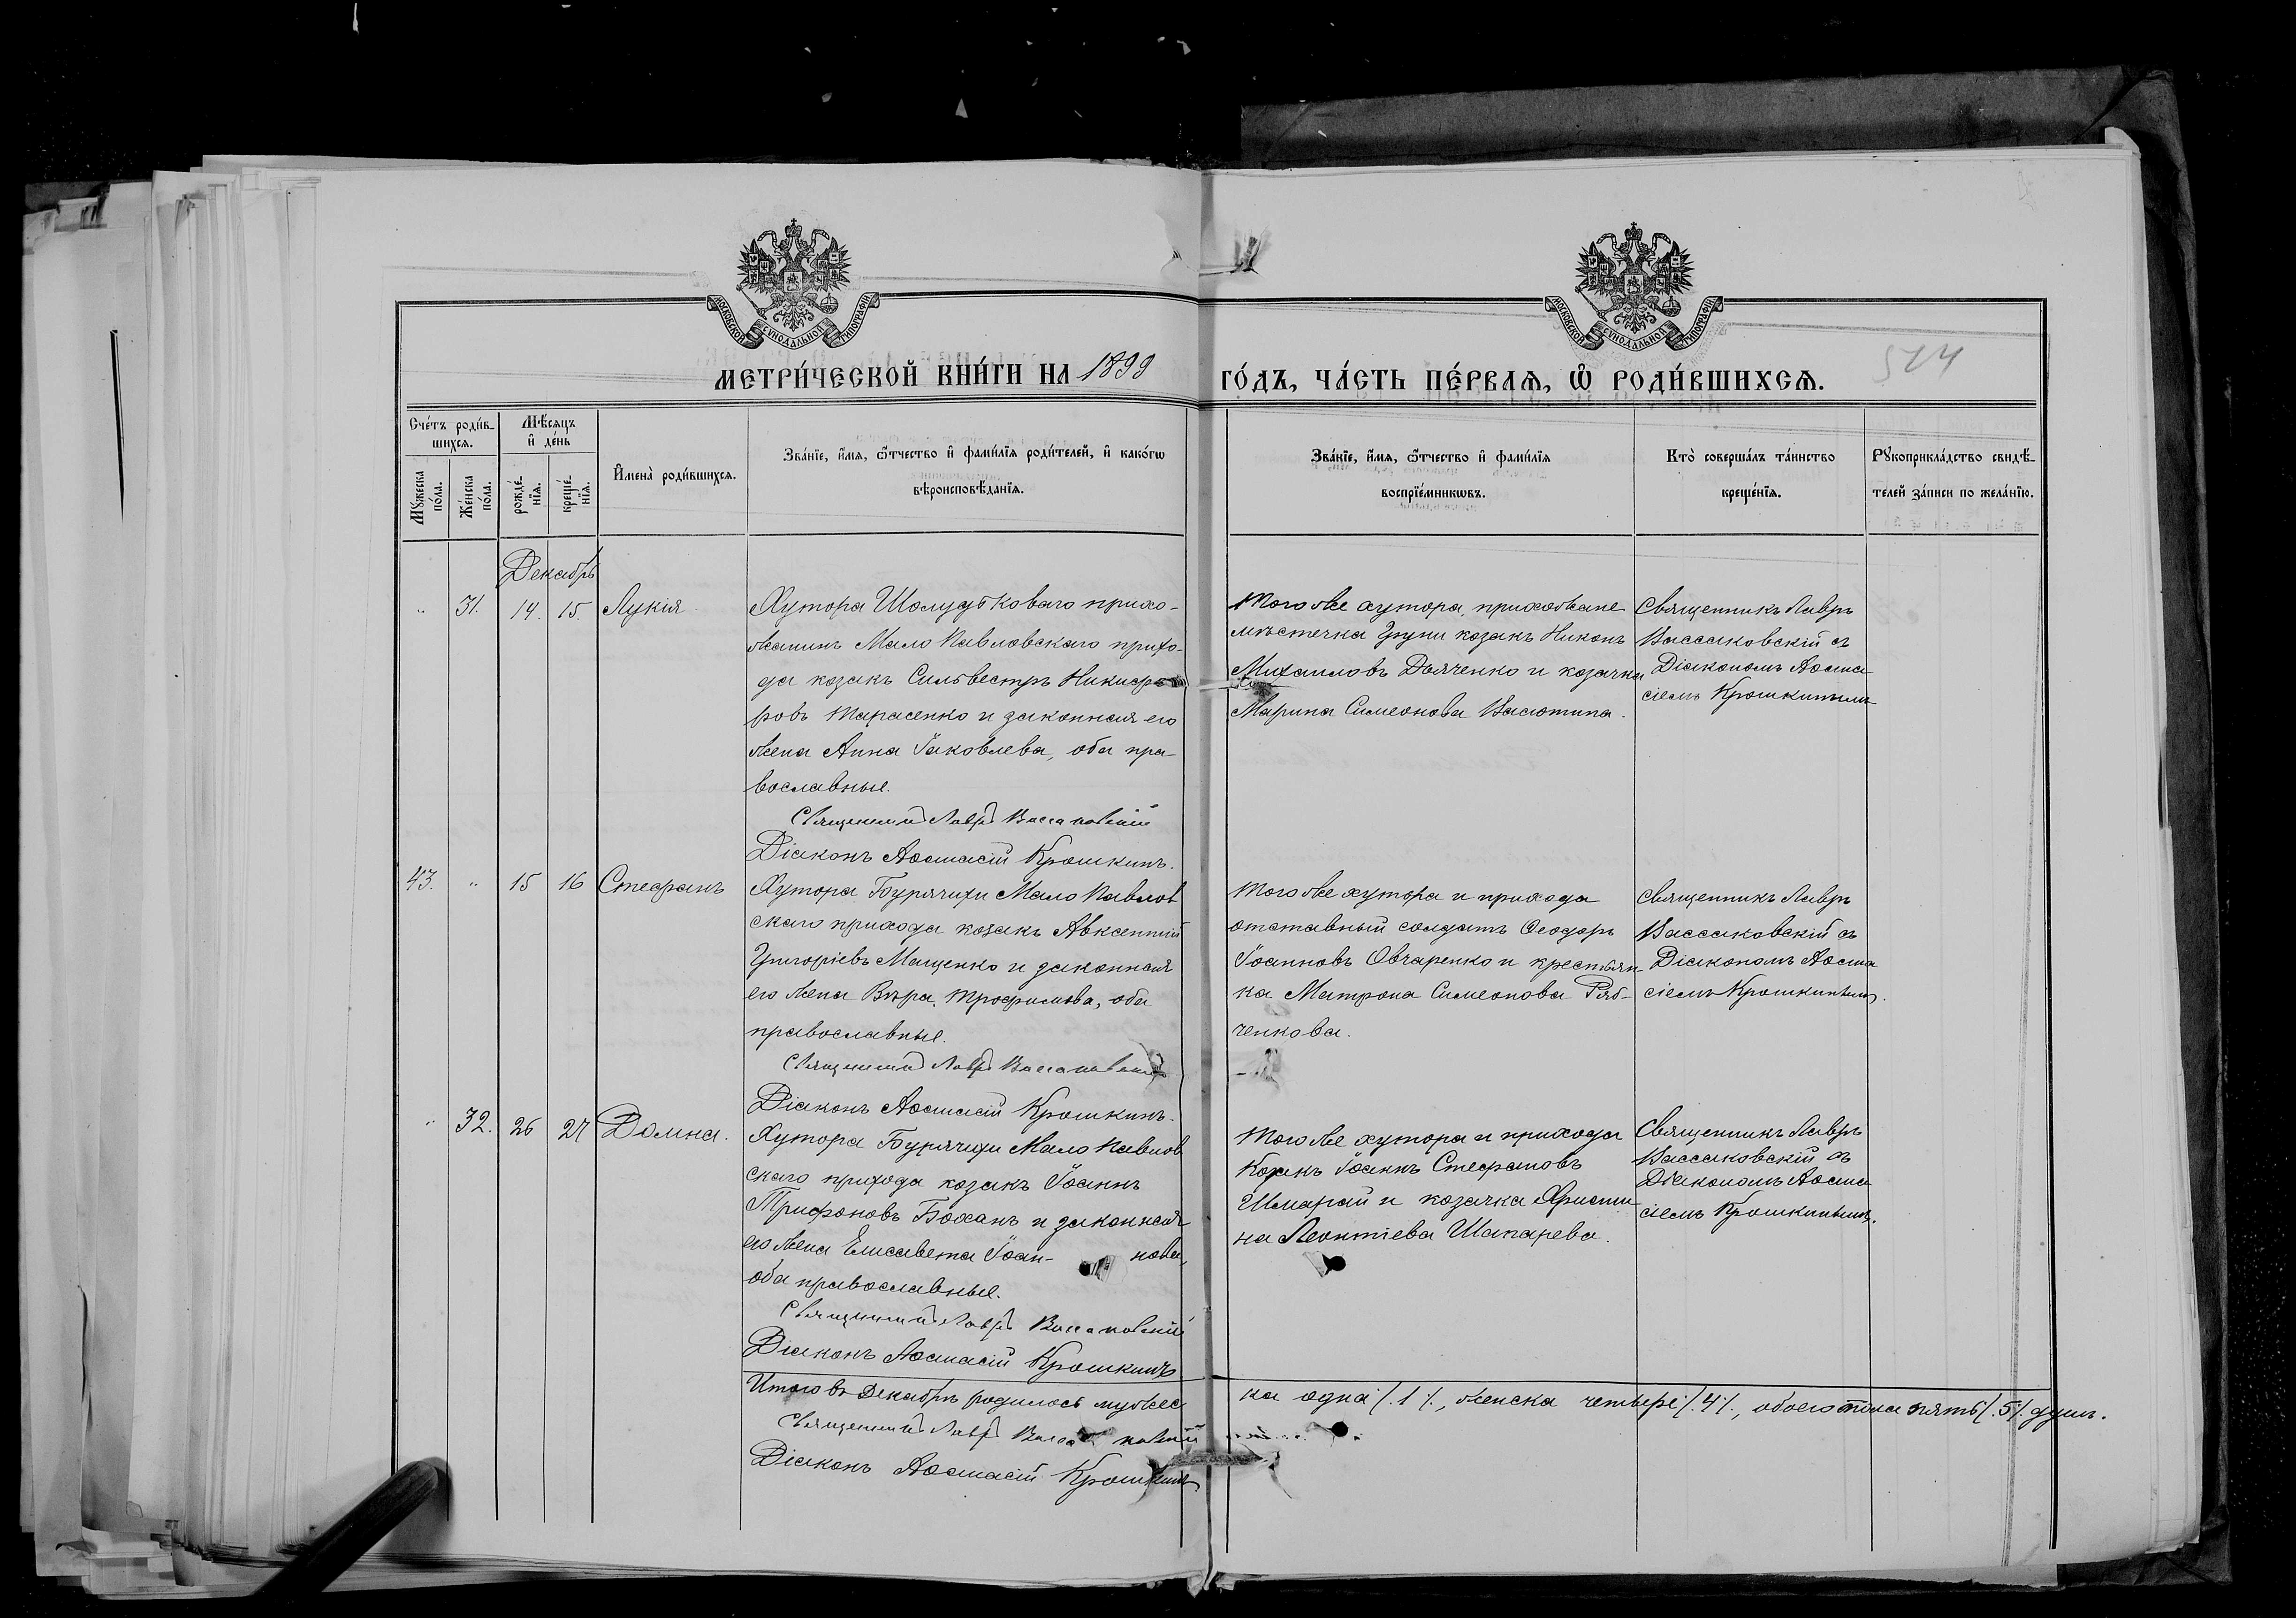 МОСКОВСКОЙ СѴНОДАЛЬНОЙ ТИПОГРАФІИ
МОСКОВСКОЙ СѴНОДАЛЬНОЙ ТИПОГРАФІИ
МЕТРИ́ЧЕСКОЙ КНИ́ГИ НА 1899 ГО́ДЪ, ЧА́СТЬ ПЕ́РВАѦ, Ѽ РОДИ́ВШИХСѦ.
Сче́тъ роди́в-
шихсѧ.
Мꙋ́жеска
по́ла.
Же́нска
по́ла.
Мѣ́сѧцъ
и҆ де́нь
рожде́-
нїѧ.
креще́-
нїѧ.
И҆мена̀ роди́вшихсѧ.
Зва́нїе, и҆́мѧ, ѻ҆́тчество и҆ фами́лїѧ роди́телей, и҆ како́гѡ
вѣроисповѣ́данїѧ.
Зва́нїе, и҆́мѧ, ѻ҆́тчество и҆ фами́лїѧ
воспрїе́мникѡвъ.
Кто̀ соверша́лъ та́инство
креще́нїѧ.
Рꙋкоприкла́дство свидѣ́-
телей за́писи по жела́нїю.
Декабрь
" 31. 14. 15. Лукія
Хутора Шолудьковаго прихо-
жанинъ Мало Павловскаго прихо-
да козакъ Сильвестръ Никифо
ровъ Тарасенко и законная его
жена Анна Іаковлева, оба пра-
вославные.
Священникъ Лавръ Вассаковскій
Діаконъ Аѳанасій Крошкинъ.
Того же хутора, прихожане
мѣстечка Груни козакъ Никонъ
Михаиловъ Дьяченко и козачка
Марина Симеонова Васютина.
Священникъ Лавръ
Вассаковскій съ
Діакономъ Аѳана
сіемъ Крошкинымъ
43. " 15 16 Стефанъ
Хутора Бурячихи Мало Павлов
скаго прихода козакъ Авксентій
Григоріевъ Мащенко и законная
его жена Вѣра Трофимова, оба
православные.
Священникъ Лавръ Вассаковскій
Діаконъ Аѳанасій Крошкинъ.
Того же хутора и прихода
отставный солдатъ Ѳеодоръ
Іоанновъ Овчаренко и крестьян-
ка Матрона Симеонова Ряб-
ченкова.
Священникъ Лавръ
Вассаковскій съ
Діакономъ Аѳана
сіемъ Крошкинымъ.
" 32. 26 27 Домна.
Хутора Бурячихи Мало Павлов
скаго прихода козакъ Іоаннъ
Трифоновъ Боханъ и законная
его жена Елисавета Іоан- нова,
оба православные.
Священникъ Лавръ Вассаковскій
Діаконъ Аѳанасій Крошкинъ
Того же хутора и прихода
Козакъ Іоаннъ Стефановъ
Шмарай и козачка Христи
на Леонтіева Шапарева.
Священникъ Лавръ
Вассаковскій съ
Діакономъ Аѳана
сіемъ Крошкинымъ.
Итого въ Декабрѣ родилось мужес ка одна /.1./, женска четыре /.4./, обоего пола пять /.5./ душъ.
Священникъ Лавръ Вассаковскій
Діаконъ Аѳанасій Крошкинъ